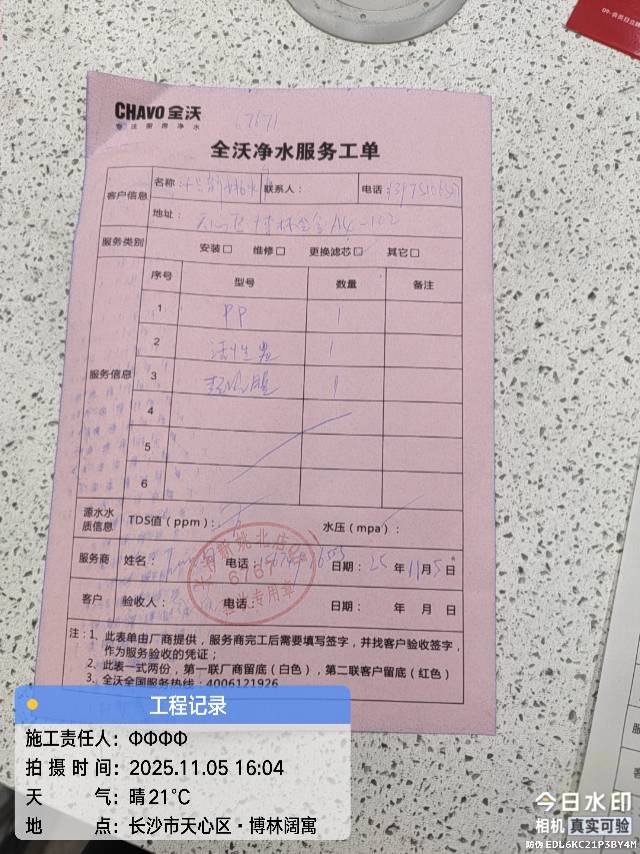 CHAVO 全沃
专注厨房净水
7671
全沃净水服务工单
客户信息 名称： 联系人： 电话：
地址： 天心区博林金谷A4-102
服务类别 安装□ 维修□ 更换滤芯□ 其它□
服务信息 序号 型号 数量 备注
1 PP 1
2 活性炭 1
3 超滤膜 1
4
5
6
源水水质信息 TDS值（ppm）： 水压（mpa）：
服务商 姓名： 电话： 日期：25年11月5日
6767
专用章
客户 验收人： 电话： 日期： 年 月 日
注：1、此表单由厂商提供，服务商完工后需要填写签字，并找客户验收签字，
作为服务验收的凭证；
2、此表一式两份，第一联厂商留底（白色），第二联客户留底（红色）
3、全沃全国服务热线：4006121926
工程记录
施工责任人：ФФФФ
拍摄时间：2025.11.05 16:04
天气：晴21℃
地点：长沙市天心区·博林阔寓
今日水印
相机 真实可验
防伪 EDL6KC21P3BY4M